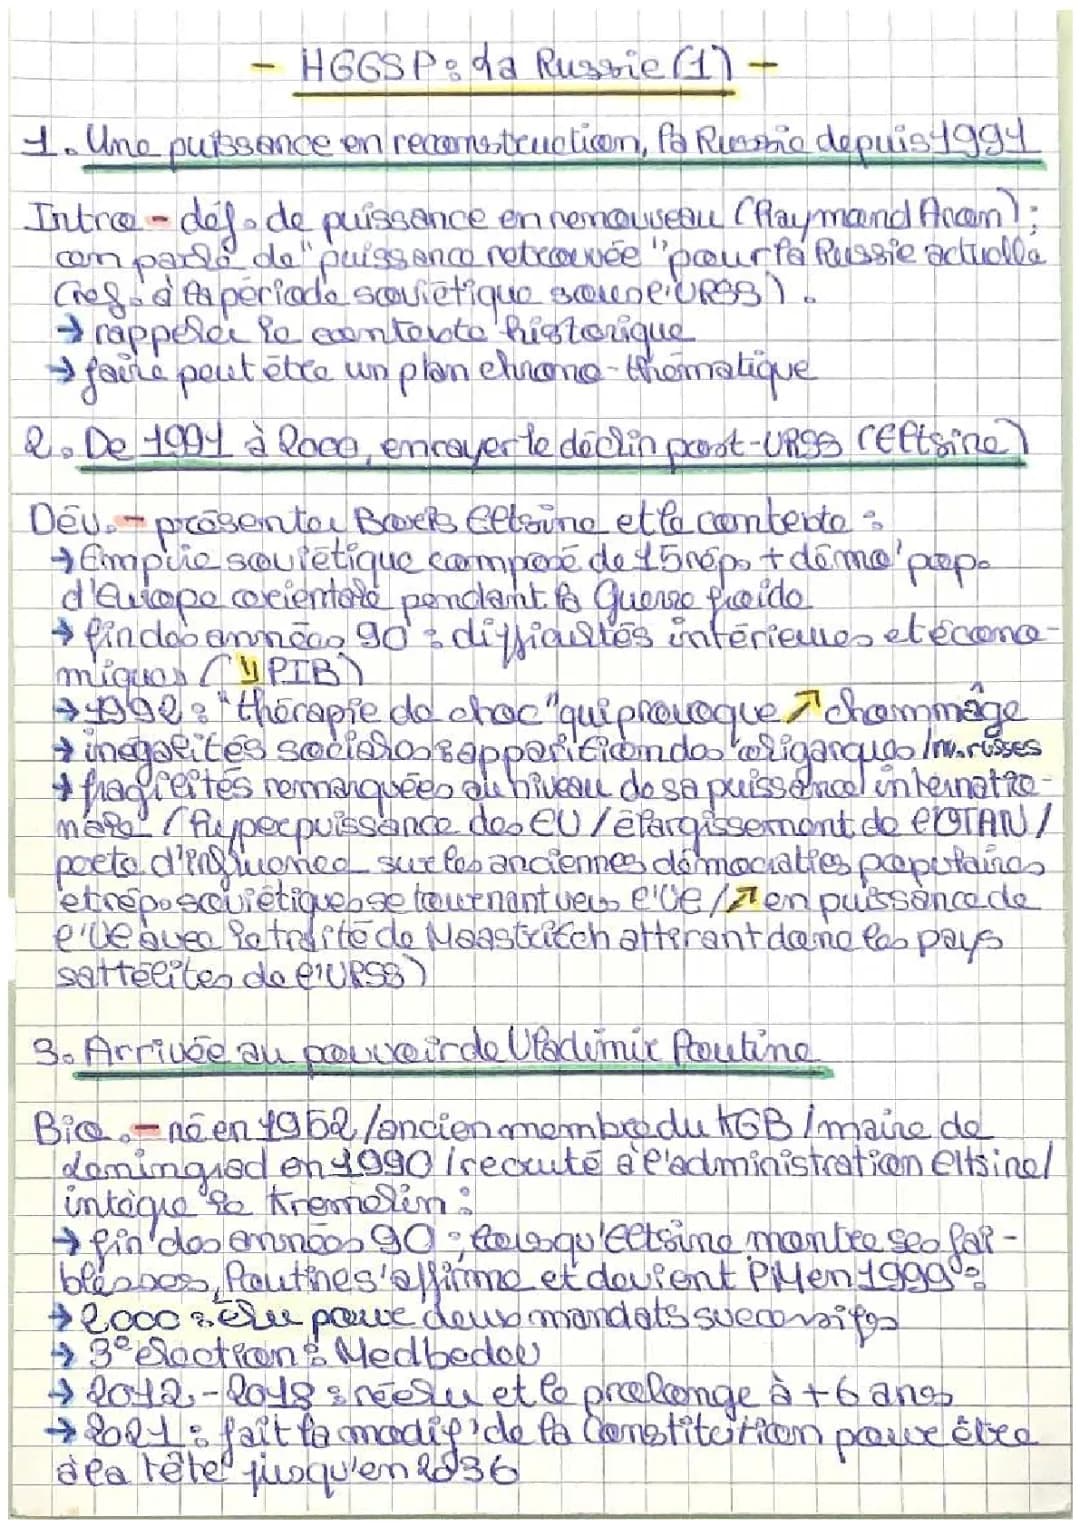 - HGGSP : La Russie (1) -
1. Une puissance en reconstruction, la Russie depuis 1991
Intro - déf. de puissance en renouveau (Raymond Aron) ;
on parle de "puissance retrouvée" pour la Russie actuelle
(réf. à la période soviétique sous l'URSS).
→ rappeler le contexte historique
→ faire peut être un plan chrono-thématique
2. De 1991 à 2000, enrayer le déclin post-URSS (Eltsine)
Dév. - présenter Boris Eltsine et le contexte :
→ Empire soviétique composé de 15 rép. + démo' pop.
d'Europe orientale pendant la Guerre froide
→ fin des années 90 : difficultés intérieures et écono-
miques (↘ PIB)
→ 1992 : "thérapie de choc" qui provoque ↗ chommâge
→ inégalités sociales : apparition des oligarques / nv. russes
→ fragilités remarquées au niveau de sa puissance internatio-
nale (hyperpuissance des EU / élargissement de l'OTAN /
perte d'influence sur les anciennes démocraties populaires
et rép. soviétiques se tournant vers l'UE / ↗ en puissance de
l'UE avec le traité de Maastritch atterant dans les pays
sattélites de l'URSS)
3. Arrivée au pouvoir de Vladimir Poutine
Bio. - né en 1952 / ancien membre du KGB / maire de
Leningrad en 1990 / recruté à l'administration Eltsine /
intègre le Kremelin :
→ fin des années 90 : lorsqu'Eltsine montre ses fai-
blesses, Poutine s'affirme et devient PM en 1999 :
→ 2000 : élu pour deux mandats successifs
→ 3e élection : Medbedev
→ 2012 - 2018 : réélu et le prolonge à + 6 ans
→ 2021 : fait la modif' de la Constitution pour être
à la tête jusqu'en 2036